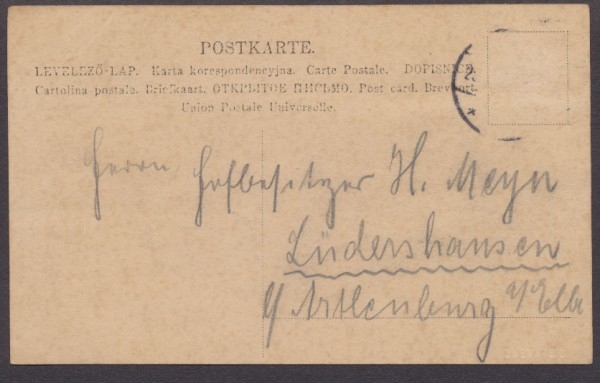 POSTKARTE.
LEVELEZŐ-LAP. Karta korespondencyjna. Carte Postale. DOPISNICE.
Cartolina postale. Briefkaart. ОТКРЫТОЕ ПИСЬМО. Post card. Brevkort.
Union Postale Universelle.
Herrn Hofbesitzer H. Meyn
Lüdershausen
b/ Artlenburg a/Elbe